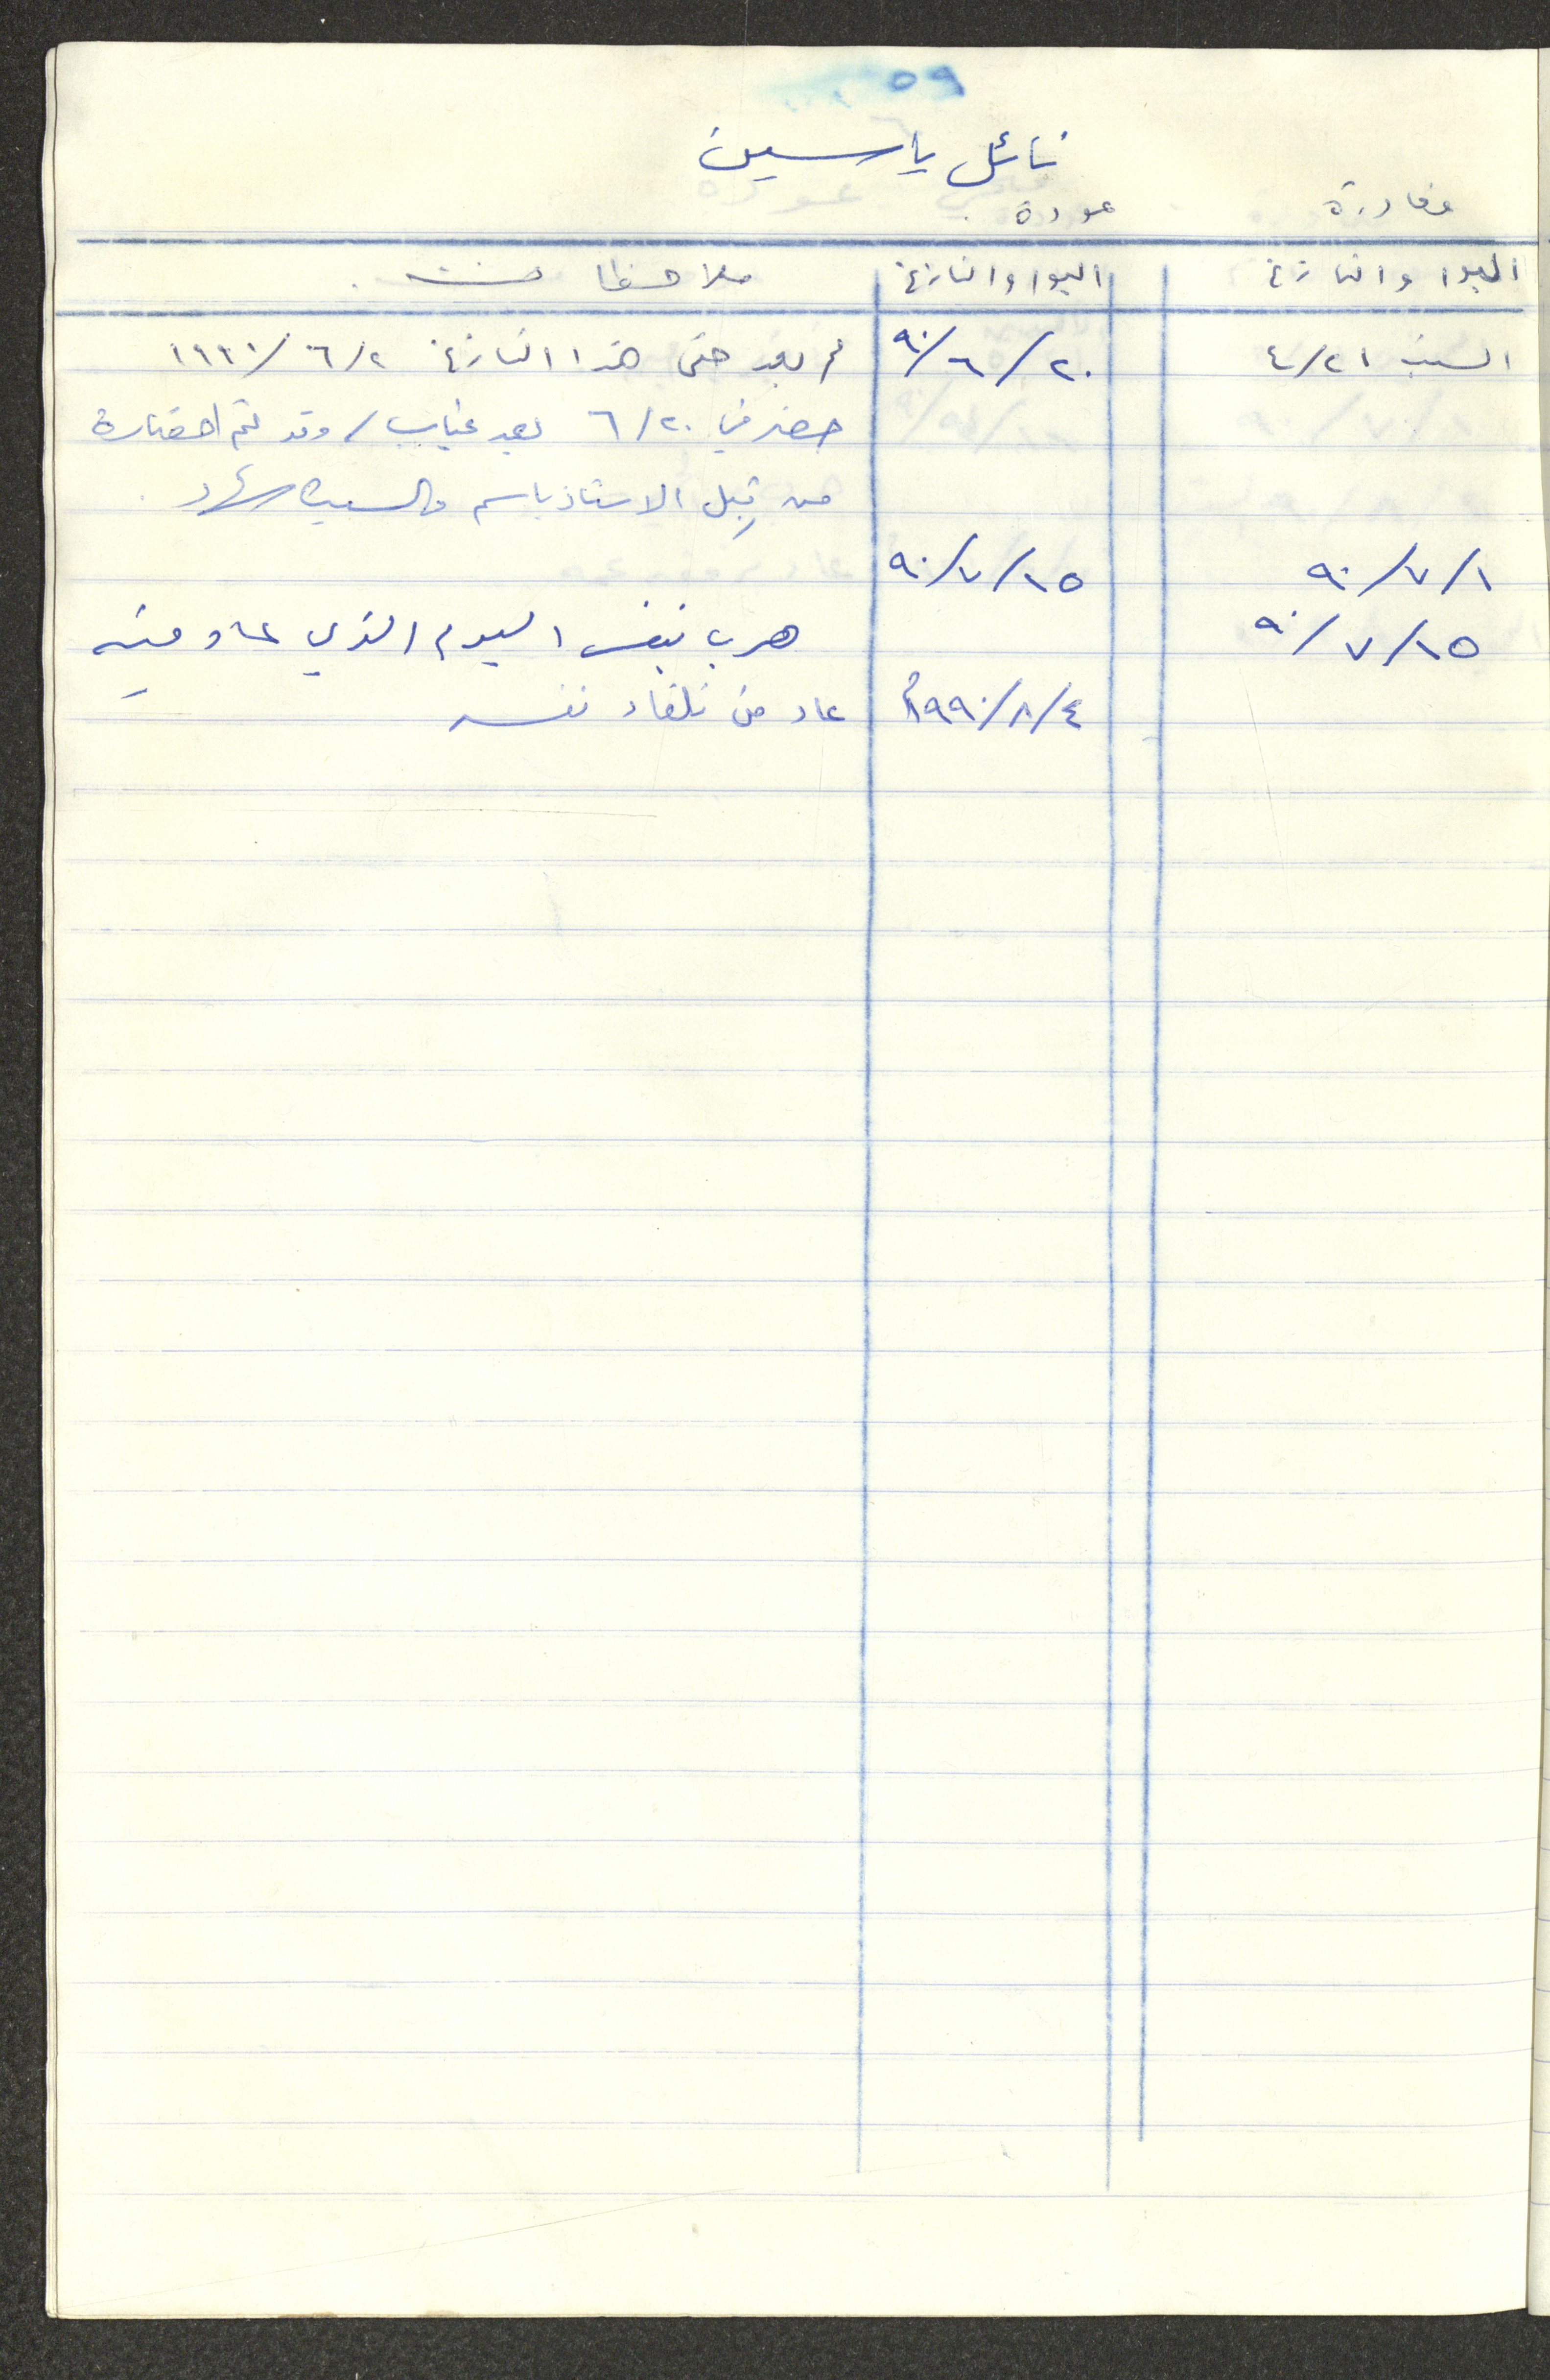 ٥٩
نائل ياسين
مغادرة عودة
اليوم والتاريخ اليوم والتاريخ ملاحظات
السبت ٤/٢١ ٩٠/٦/٢٠ لم يعد حتى هذا التاريخ ٦/٢/١٩٩٠
حضر في ٦/٢٠ بعد غياب/ وقد تم احضاره
من قبل الاستاذ باسم والسيدة سهاد.
٩٠/٧/١ ٩٠/٧/١٥
٩٠/٧/١٥ هرب بنفس اليوم الذي عاد فيه
١٩٩٠/٨/٤م عاد من تلقاء نفسه